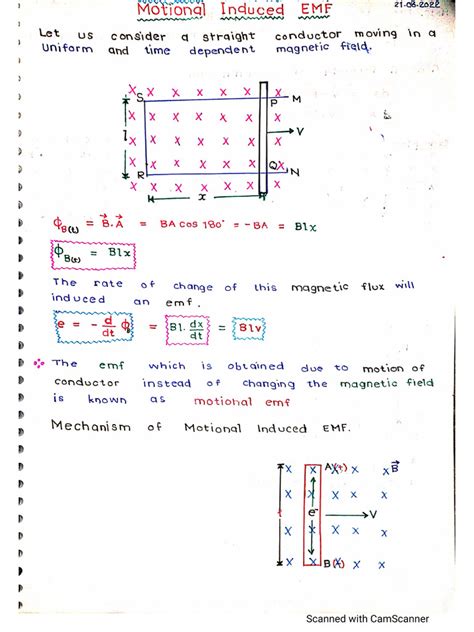 Motional Induced EMF
21-08-2022
Let us consider a straight conductor moving in a
Uniform and time dependent magnetic field.
x x x x x x x
S P M
x x x x x x x
l V
x x x x x x x
R Q N
x x x x x x x
x
ϕB(t) = B⃗.A⃗ = BA cos 180° = -BA = Blx
ϕB(t) = Blx
The rate of change of this magnetic flux will
induced an emf.
e = - d/dt ϕB = Bl. dx/dt = Blv
The emf which is obtained due to motion of
conductor instead of changing the magnetic field
is known as motional emf
Mechanism of Motional Induced EMF.
x x A(+) x x x B⃗
x x x x x
l e⁻ V
x x x x x
x x B(-) x x x
Scanned with CamScanner